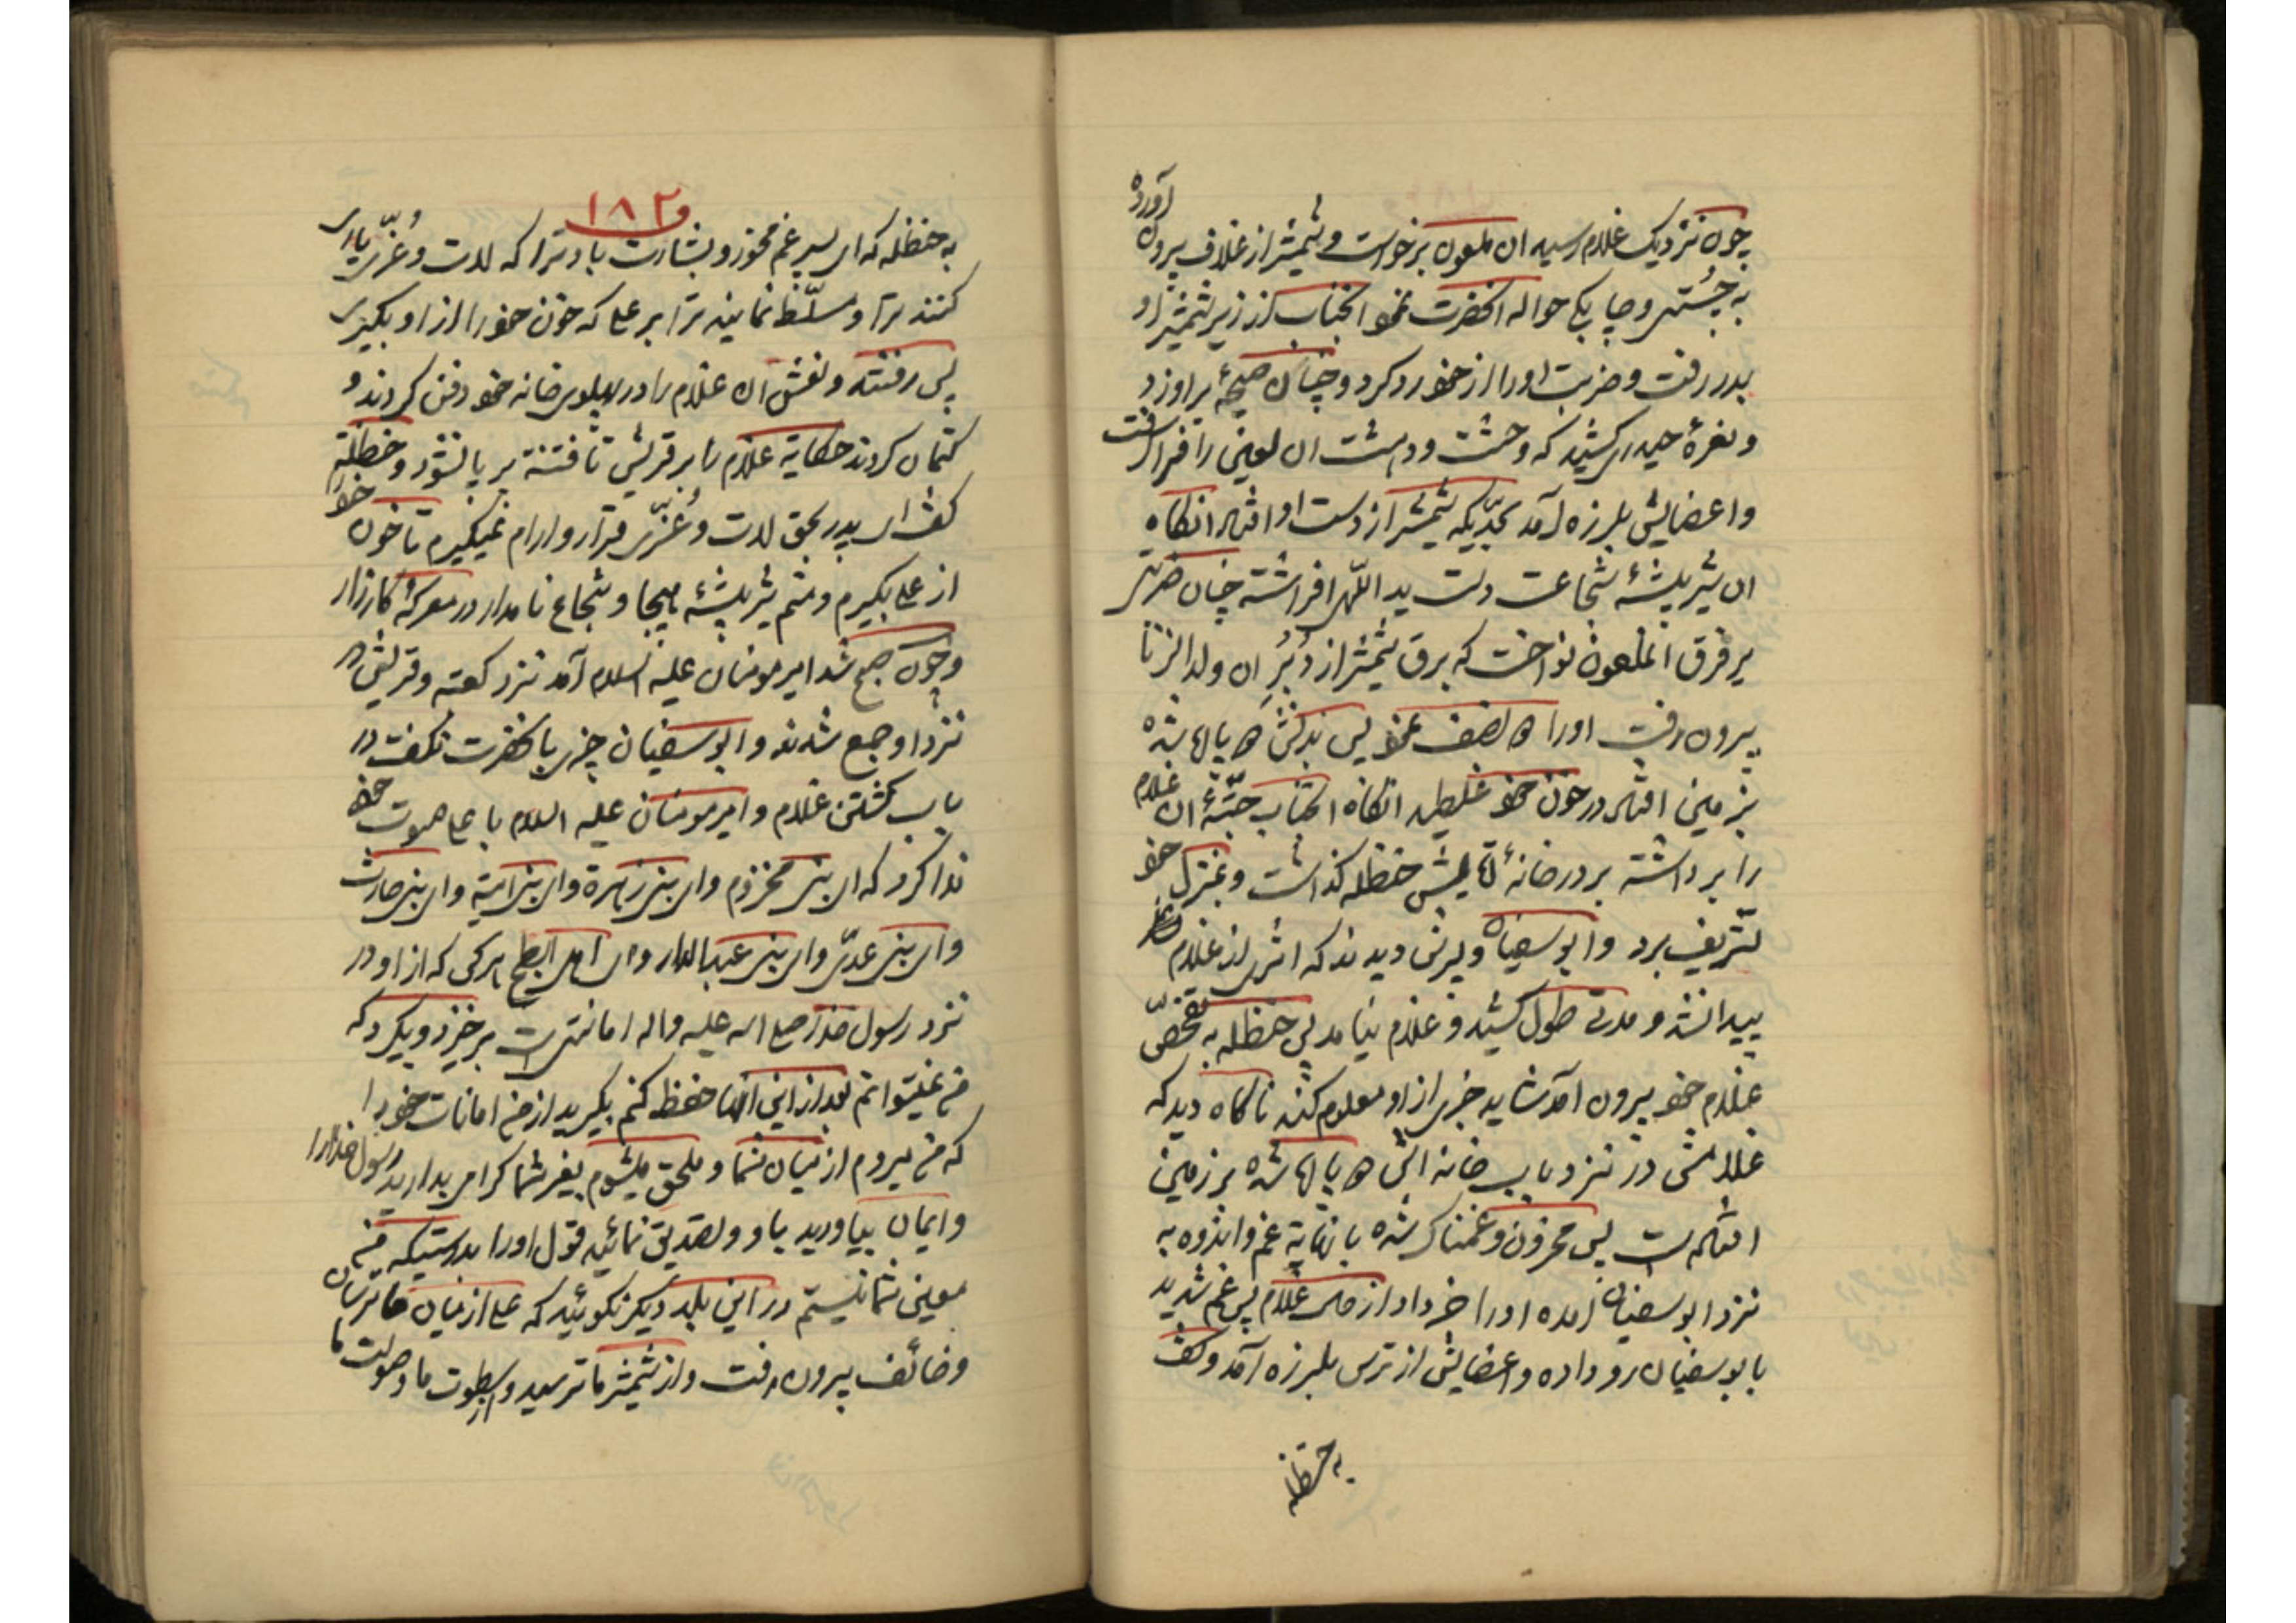 چون نزدیک غلام رسید ان ملعون برخواست و شمشیر از غلاف بیرون آورده
به چُستی و چابکی حواله انحضرت نمود انجناب از زیر شمشیر او
بدر رفت و ضربت او را از خود رد کرد و چنان صیحهٔ براورد
و نعرهٔ حیدری کشید که وحشت و دهشت ان لعین را فرا گرفت
و اعضایش بلرزه آمد بحدّیکه شمشیر از دست او افتاد انکاه
ان شیر بیشهٔ شجاعت دست ید اللّهی افراشته چنان ضربتی
بر فرق انملعون نواخت که برق شمشیر از دُبُرِ ان ولد الزنا
بیرون رفت او را دو نصف نمود پس بدنش دو پاره شده
بزمین افتاد در خون خود غلطید انکاه انجناب جثّهٔ ان غلام
را برداشته بر در خانهٔ اقایش حنظله کذاشت و بمنزل خود
تشریف برد و ابو سفیان و پسرش دیدند که اثری از غلام
پیدا نشد و مدتی طول کشید و غلام نیامد پس حنظله به تفحّص
غلام خود بیرون آمد شاید خبری از او معلوم کند ناکاه دید که
غلامش در نزد باب خانه اش دو پاره شده بر زمین
افتاده است پس محزون و غمناک شده با نهایة غم و اندوه به
نزد ابو سفیان آمده او را خبر داد از حال غلام پس غم شدید
بابو سفیان رو داده و اعضایش از ترس بلرزه آمد و کفت
به حنظله
۱۸۲
به حنظله که ای پسر غم مخور و بشارت باد ترا که لات و عُزّی یاری
کنند ترا و مسلّط نمایند ترا بر علی که خون خود را از او بکیری
پس رفتند و نعش ان غلام را در پهلوی خانه خود دفن کردند و
کتمان کردند حکایة غلام را بر قریش تا فتنه بر پا نشود و حنظله
کفت ای پدر بحق لات و عُزّی قرار و ارام نمیکیرم تا خون خود
از علی بکیرم و منم شیر بیشهٔ هیجا و شجاع نامدار در معرکهٔ کارزار
و چون صبح شد امیر مومنان علیه السلام آمد نزد کعبه و قریش در
نزد او جمع شدند و ابو سفیان چیزی بانحضرت نکفت در
باب کشتن غلام و امیر مومنان علیه السلام باعلی صوت خود
ندا کرد که ای بنی مخزوم و ای بنی زهرة و ای بنی امیّة و ای بنی حارث
و ای بنی عدیّ و ای بنی عبد الدار و ای اهل ابطح هر کس که از او در
نزد رسول خدا صلی الله علیه و اله امانتی است بر خیزد و بکیرد که
من نمیتوانم بعد از این انها حفظ کنم بکیرید از من امانات خود را
که من میروم از میان شما و ملحق میشوم بغیر شما کرامی بدارید رسول خدا را
و ایمان بیاورید باو و تصدیق نمائید قول او را بدرستیکه من
معین شما نیستم در این بلد دیکر نکوئید که علی از میان ما ترسان
و خائف بیرون رفت و از شمشیر ما ترسید و از سطوت ما و صولت ما